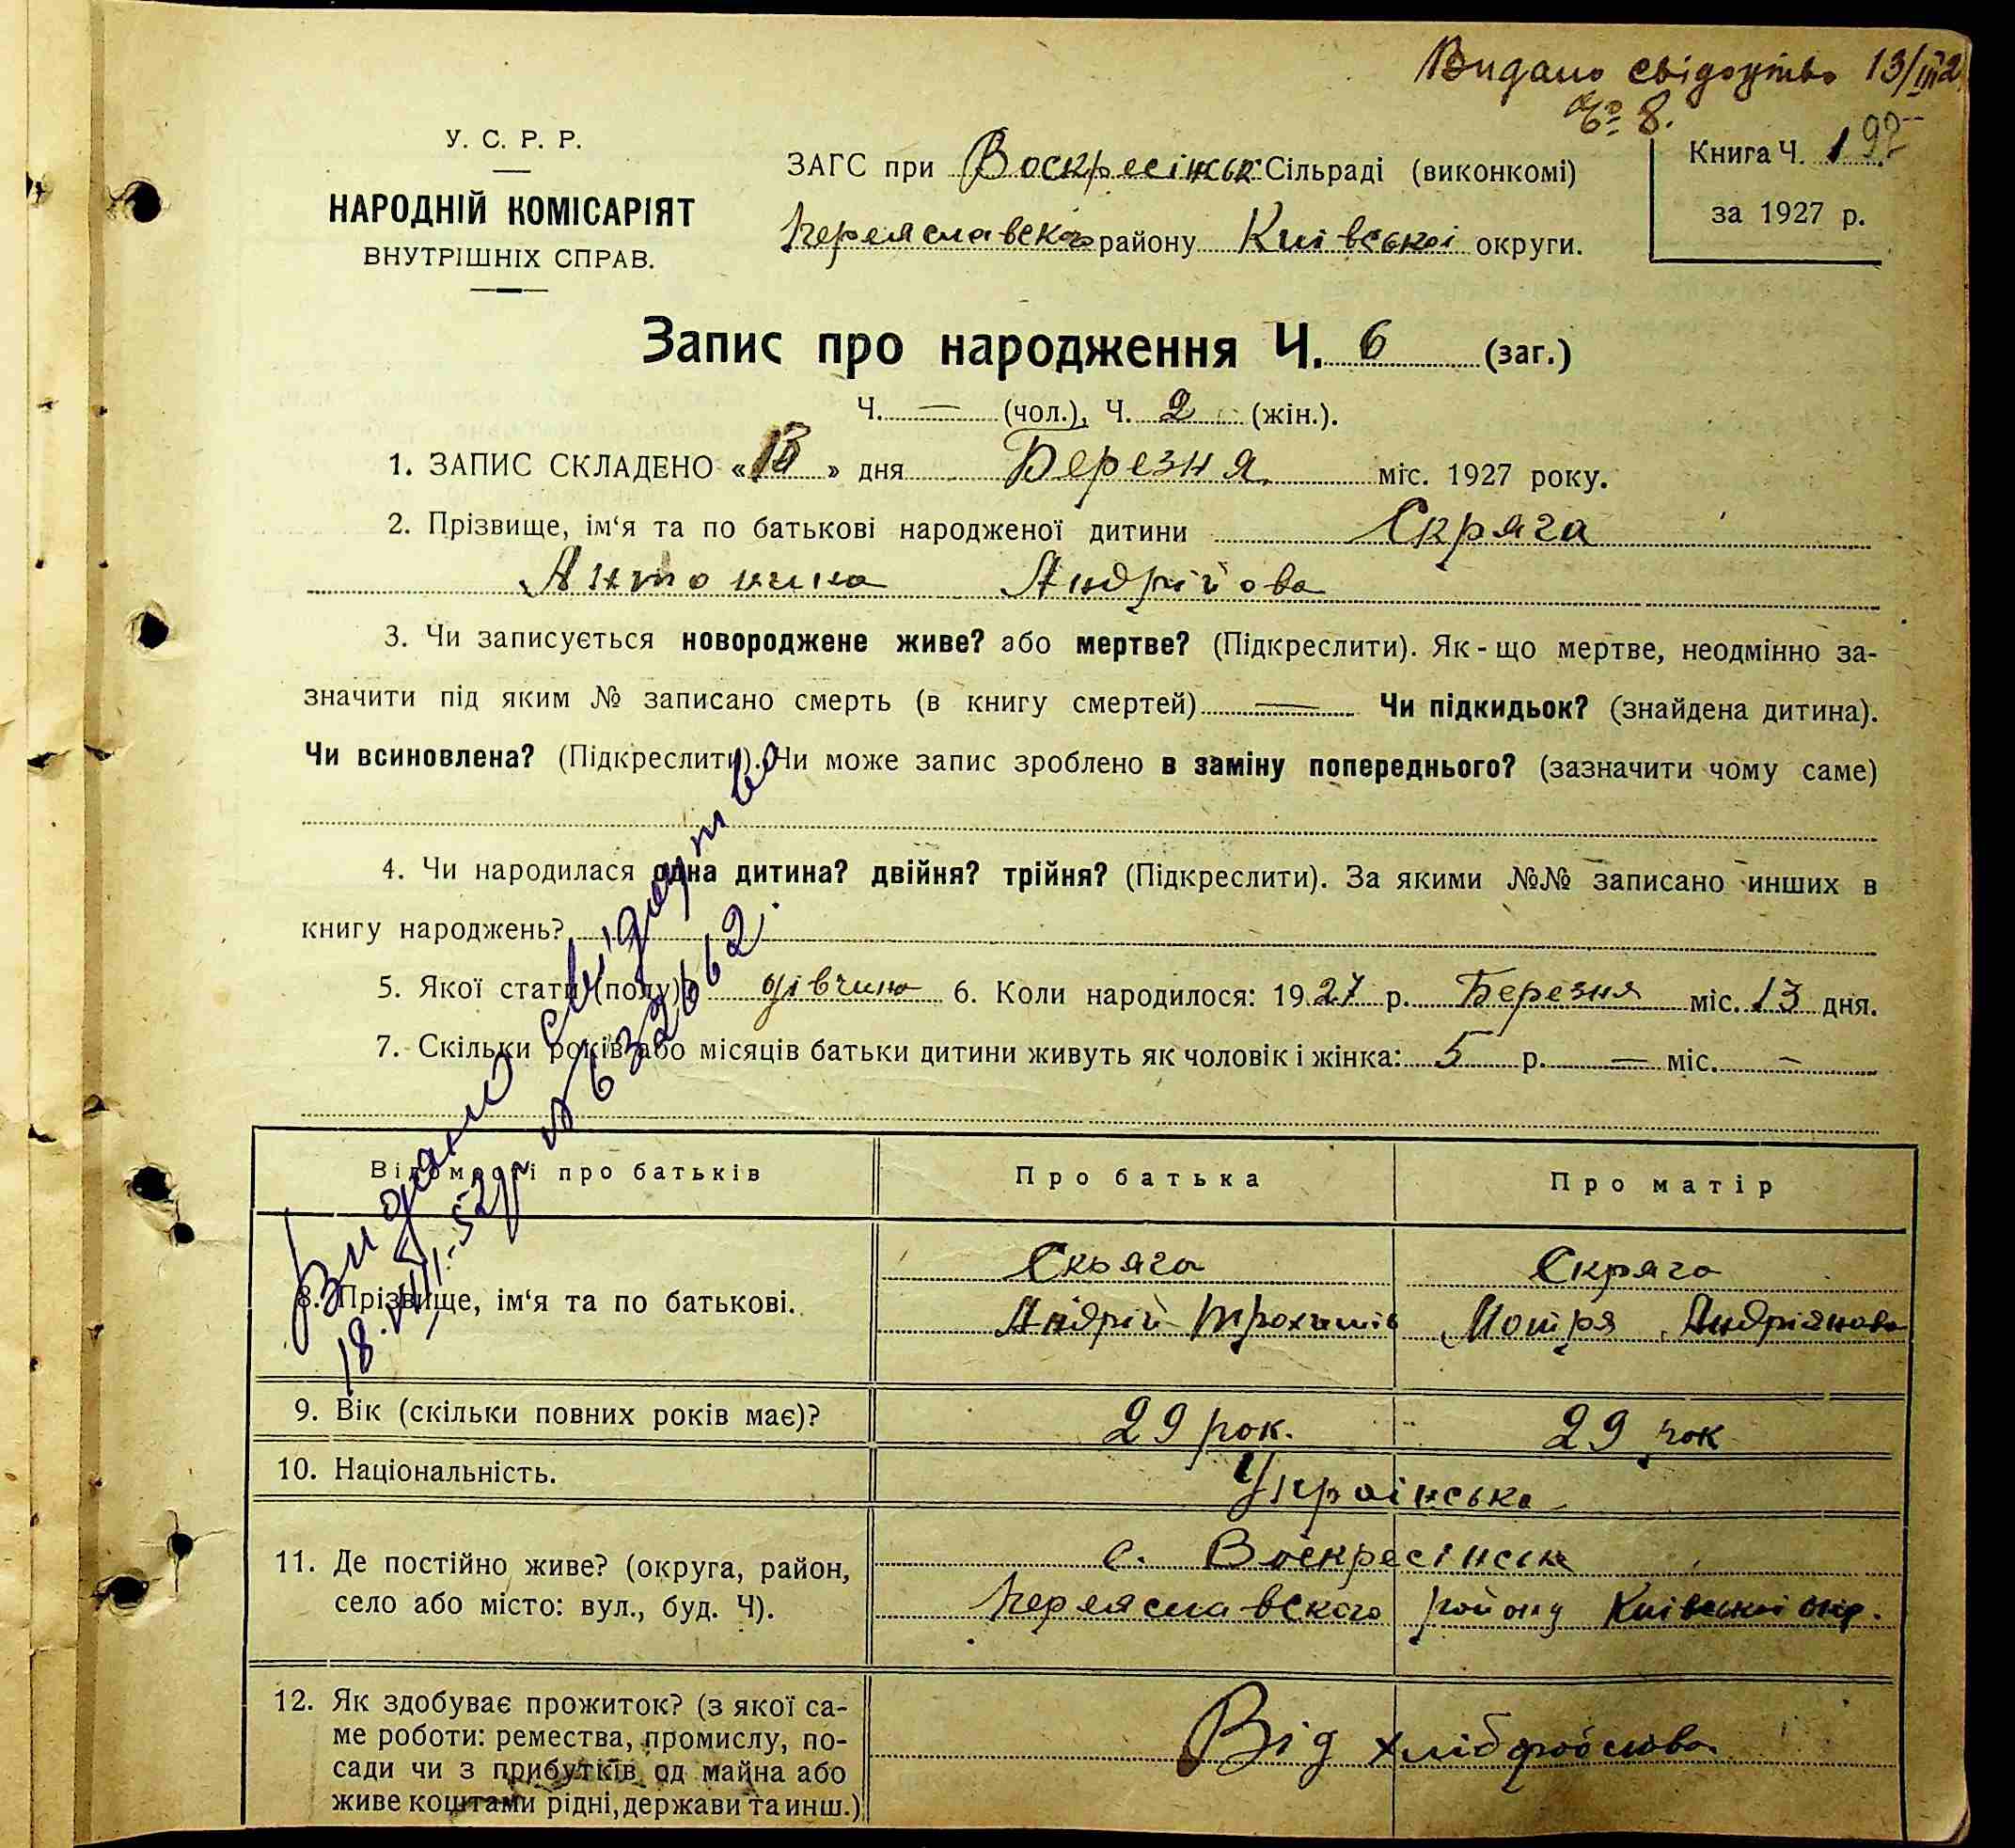 Видано свідоцтво 13/III 2
№ 8.
У. С. Р. Р.
НАРОДНІЙ КОМІСАРІЯТ
ВНУТРІШНІХ СПРАВ.
ЗАГС при Воскресінськ Сільраді (виконкомі)
Переяславского району Київської округи.
Книга Ч. 1
за 1927 р.
Запис про народження Ч. 6 (заг.)
Ч. — (чол.), Ч. 2 (жін.).
1. ЗАПИС СКЛАДЕНО «13» дня Березня міс. 1927 року.
2. Прізвище, ім‘я та по батькові народженої дитини Скряга
Антонина Андрійова
3. Чи записується новороджене живе? або мертве? (Підкреслити). Як-що мертве, неодмінно за-
значити під яким № записано смерть (в книгу смертей) — Чи підкидьок? (знайдена дитина).
Чи всиновлена? (Підкреслити). Чи може запис зроблено в заміну попереднього? (зазначити чому саме)
4. Чи народилася одна дитина? двійня? трійня? (Підкреслити). За якими №№ записано инших в
книгу народжень?
5. Якої статі (полу) дівчина 6. Коли народилося: 1927 р. Березня міс. 13 дня.
7. Скільки років або місяців батьки дитини живуть як чоловік і жінка: 5 р. — міс. —
Видано свідоцтво
18.VII-52р № 632662.
Відомості про батьків
Про батька
Про матір
8. Прізвище, ім‘я та по батькові.
Скряга
Андрій Трохимів
Скряга
Мотря Андріянова
9. Вік (скільки повних років має)?
29 рок.
29 рок
10. Національність.
Українська
11. Де постійно живе? (округа, район,
село або місто: вул., буд. Ч).
с. Воскресінськ
Переяславского району Київської окр.
12. Як здобуває прожиток? (з якої са-
ме роботи: ремества, промислу, по-
сади чи з прибутків од майна або
живе коштами рідні, держави та инш.)
Від хлібробства